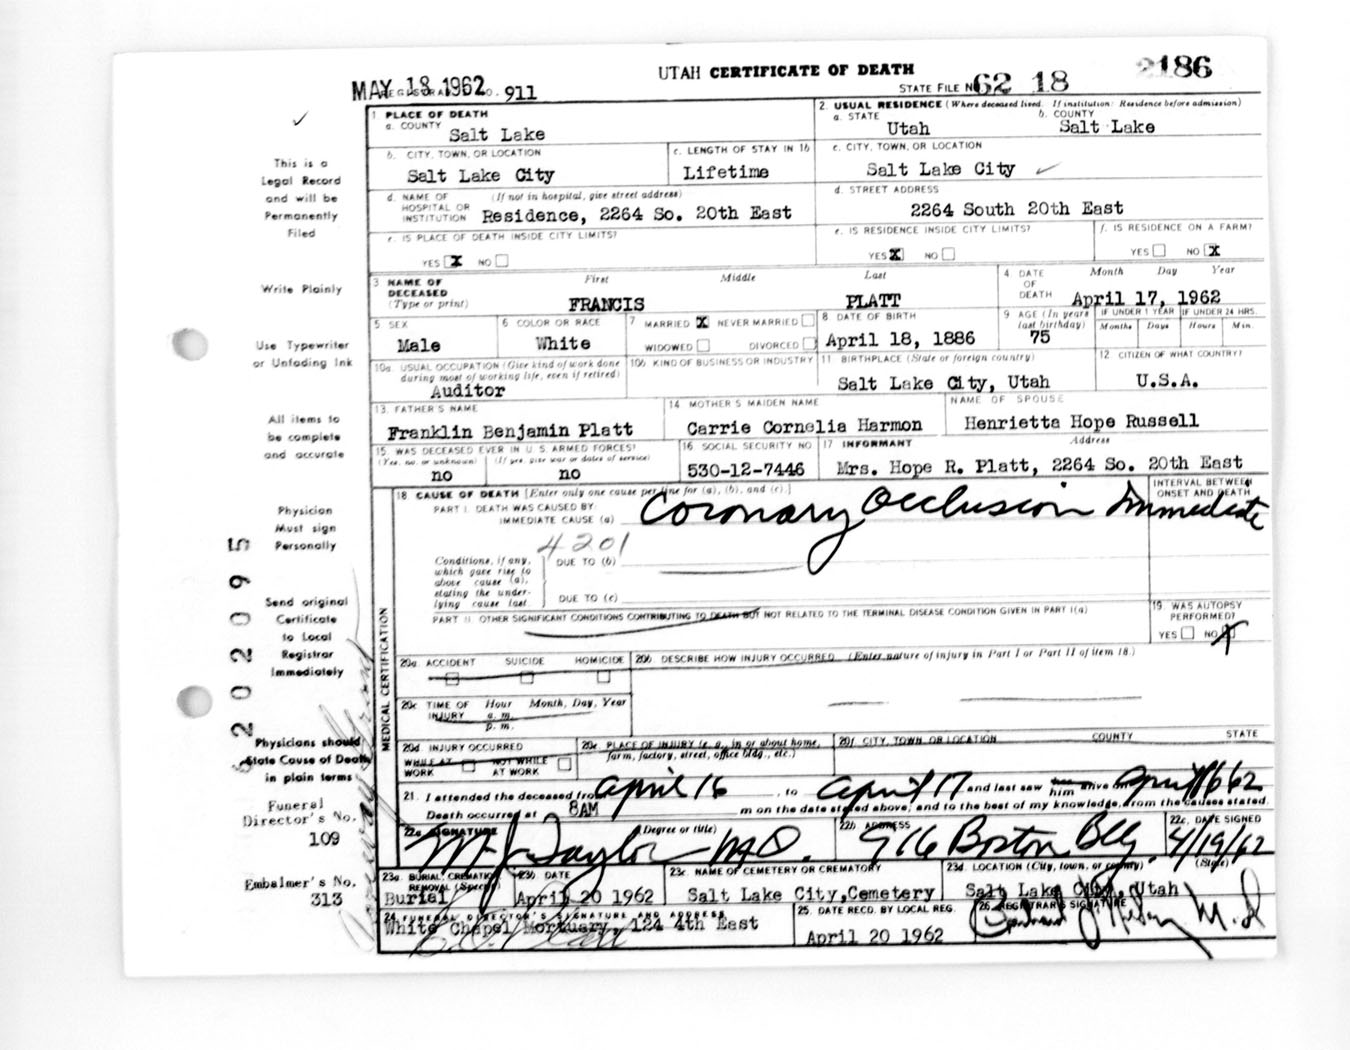 UTAH CERTIFICATE OF DEATH
2186
MAY 18 1962
REGISTRAR'S NO. 911
STATE FILE NO. 62 18
1 PLACE OF DEATH
a. COUNTY
Salt Lake
2. USUAL RESIDENCE (Where deceased lived. If institution: Residence before admission)
a. STATE
Utah
b. COUNTY
Salt Lake
b. CITY, TOWN, OR LOCATION
Salt Lake City
c. LENGTH OF STAY IN 1b
Lifetime
c. CITY, TOWN, OR LOCATION
Salt Lake City
d. NAME OF HOSPITAL OR INSTITUTION
(If not in hospital, give street address)
Residence, 2264 So. 20th East
d. STREET ADDRESS
2264 South 20th East
e. IS PLACE OF DEATH INSIDE CITY LIMITS?
YES X NO
e. IS RESIDENCE INSIDE CITY LIMITS?
YES X NO
f. IS RESIDENCE ON A FARM?
YES NO X
3 NAME OF DECEASED
(Type or print)
First Middle Last
FRANCIS PLATT
4 DATE OF DEATH
Month Day Year
April 17, 1962
5 SEX
Male
6 COLOR OR RACE
White
7 MARRIED X NEVER MARRIED
WIDOWED DIVORCED
8 DATE OF BIRTH
April 18, 1886
9 AGE (In years last birthday)
75
IF UNDER 1 YEAR
Months Days
IF UNDER 24 HRS.
Hours Min.
10a. USUAL OCCUPATION (Give kind of work done during most of working life, even if retired)
Auditor
10b KIND OF BUSINESS OR INDUSTRY
11 BIRTHPLACE (State or foreign country)
Salt Lake City, Utah
12 CITIZEN OF WHAT COUNTRY?
U.S.A.
13. FATHER'S NAME
Franklin Benjamin Platt
14 MOTHER'S MAIDEN NAME
Carrie Cornelia Harmon
NAME OF SPOUSE
Henrietta Hope Russell
15 WAS DECEASED EVER IN U.S. ARMED FORCES?
(Yes, no, or unknown)
no
(If yes, give war or dates of service)
no
16 SOCIAL SECURITY NO
530-12-7446
17 INFORMANT Address
Mrs. Hope R. Platt, 2264 So. 20th East
MEDICAL CERTIFICATION
18 CAUSE OF DEATH [Enter only one cause per line for (a), (b), and (c).]
PART I. DEATH WAS CAUSED BY:
IMMEDIATE CAUSE (a)
Coronary Occlusion
INTERVAL BETWEEN ONSET AND DEATH
Immediate
4201
Conditions, if any, which gave rise to above cause (a), stating the underlying cause last.
DUE TO (b)
DUE TO (c)
PART II. OTHER SIGNIFICANT CONDITIONS CONTRIBUTING TO DEATH BUT NOT RELATED TO THE TERMINAL DISEASE CONDITION GIVEN IN PART I(a)
19. WAS AUTOPSY PERFORMED?
YES NO X
20a ACCIDENT SUICIDE HOMICIDE
20b DESCRIBE HOW INJURY OCCURRED. (Enter nature of injury in Part I or Part II of item 18.)
20c TIME OF INJURY
Hour Month, Day, Year
a. m.
p. m.
20d INJURY OCCURRED
WHILE AT WORK NOT WHILE AT WORK
20e. PLACE OF INJURY (e. g., in or about home, farm, factory, street, office bldg., etc.)
20f. CITY, TOWN OR LOCATION COUNTY STATE
21. I attended the deceased from April 16, to April 17 and last saw him alive on April 16 62
Death occurred at 8AM m on the date stated above; and to the best of my knowledge, from the causes stated.
22a SIGNATURE (Degree or title)
M J Taylor M.D.
22b ADDRESS
916 Boston Bldg.
22c. DATE SIGNED
4/19/62
23a. BURIAL, CREMATION, REMOVAL (Specify)
Burial
23b DATE
April 20 1962
23c NAME OF CEMETERY OR CREMATORY
Salt Lake City, Cemetery
23d LOCATION (City, town, or county) (State)
Salt Lake City, Utah
24 FUNERAL DIRECTOR'S SIGNATURE AND ADDRESS
White Chapel Mortuary, 124 4th East
25. DATE RECD. BY LOCAL REG.
April 20 1962
26. REGISTRAR'S SIGNATURE
This is a
Legal Record
and will be
Permanently
Filed
Write Plainly
Use Typewriter
or Unfading Ink
All items to
be complete
and accurate
Physician
Must sign
Personally
Send original
Certificate
to Local
Registrar
Immediately
Physicians should
State Cause of Death
in plain terms
Funeral
Director's No.
109
Embalmer's No.
313
202095